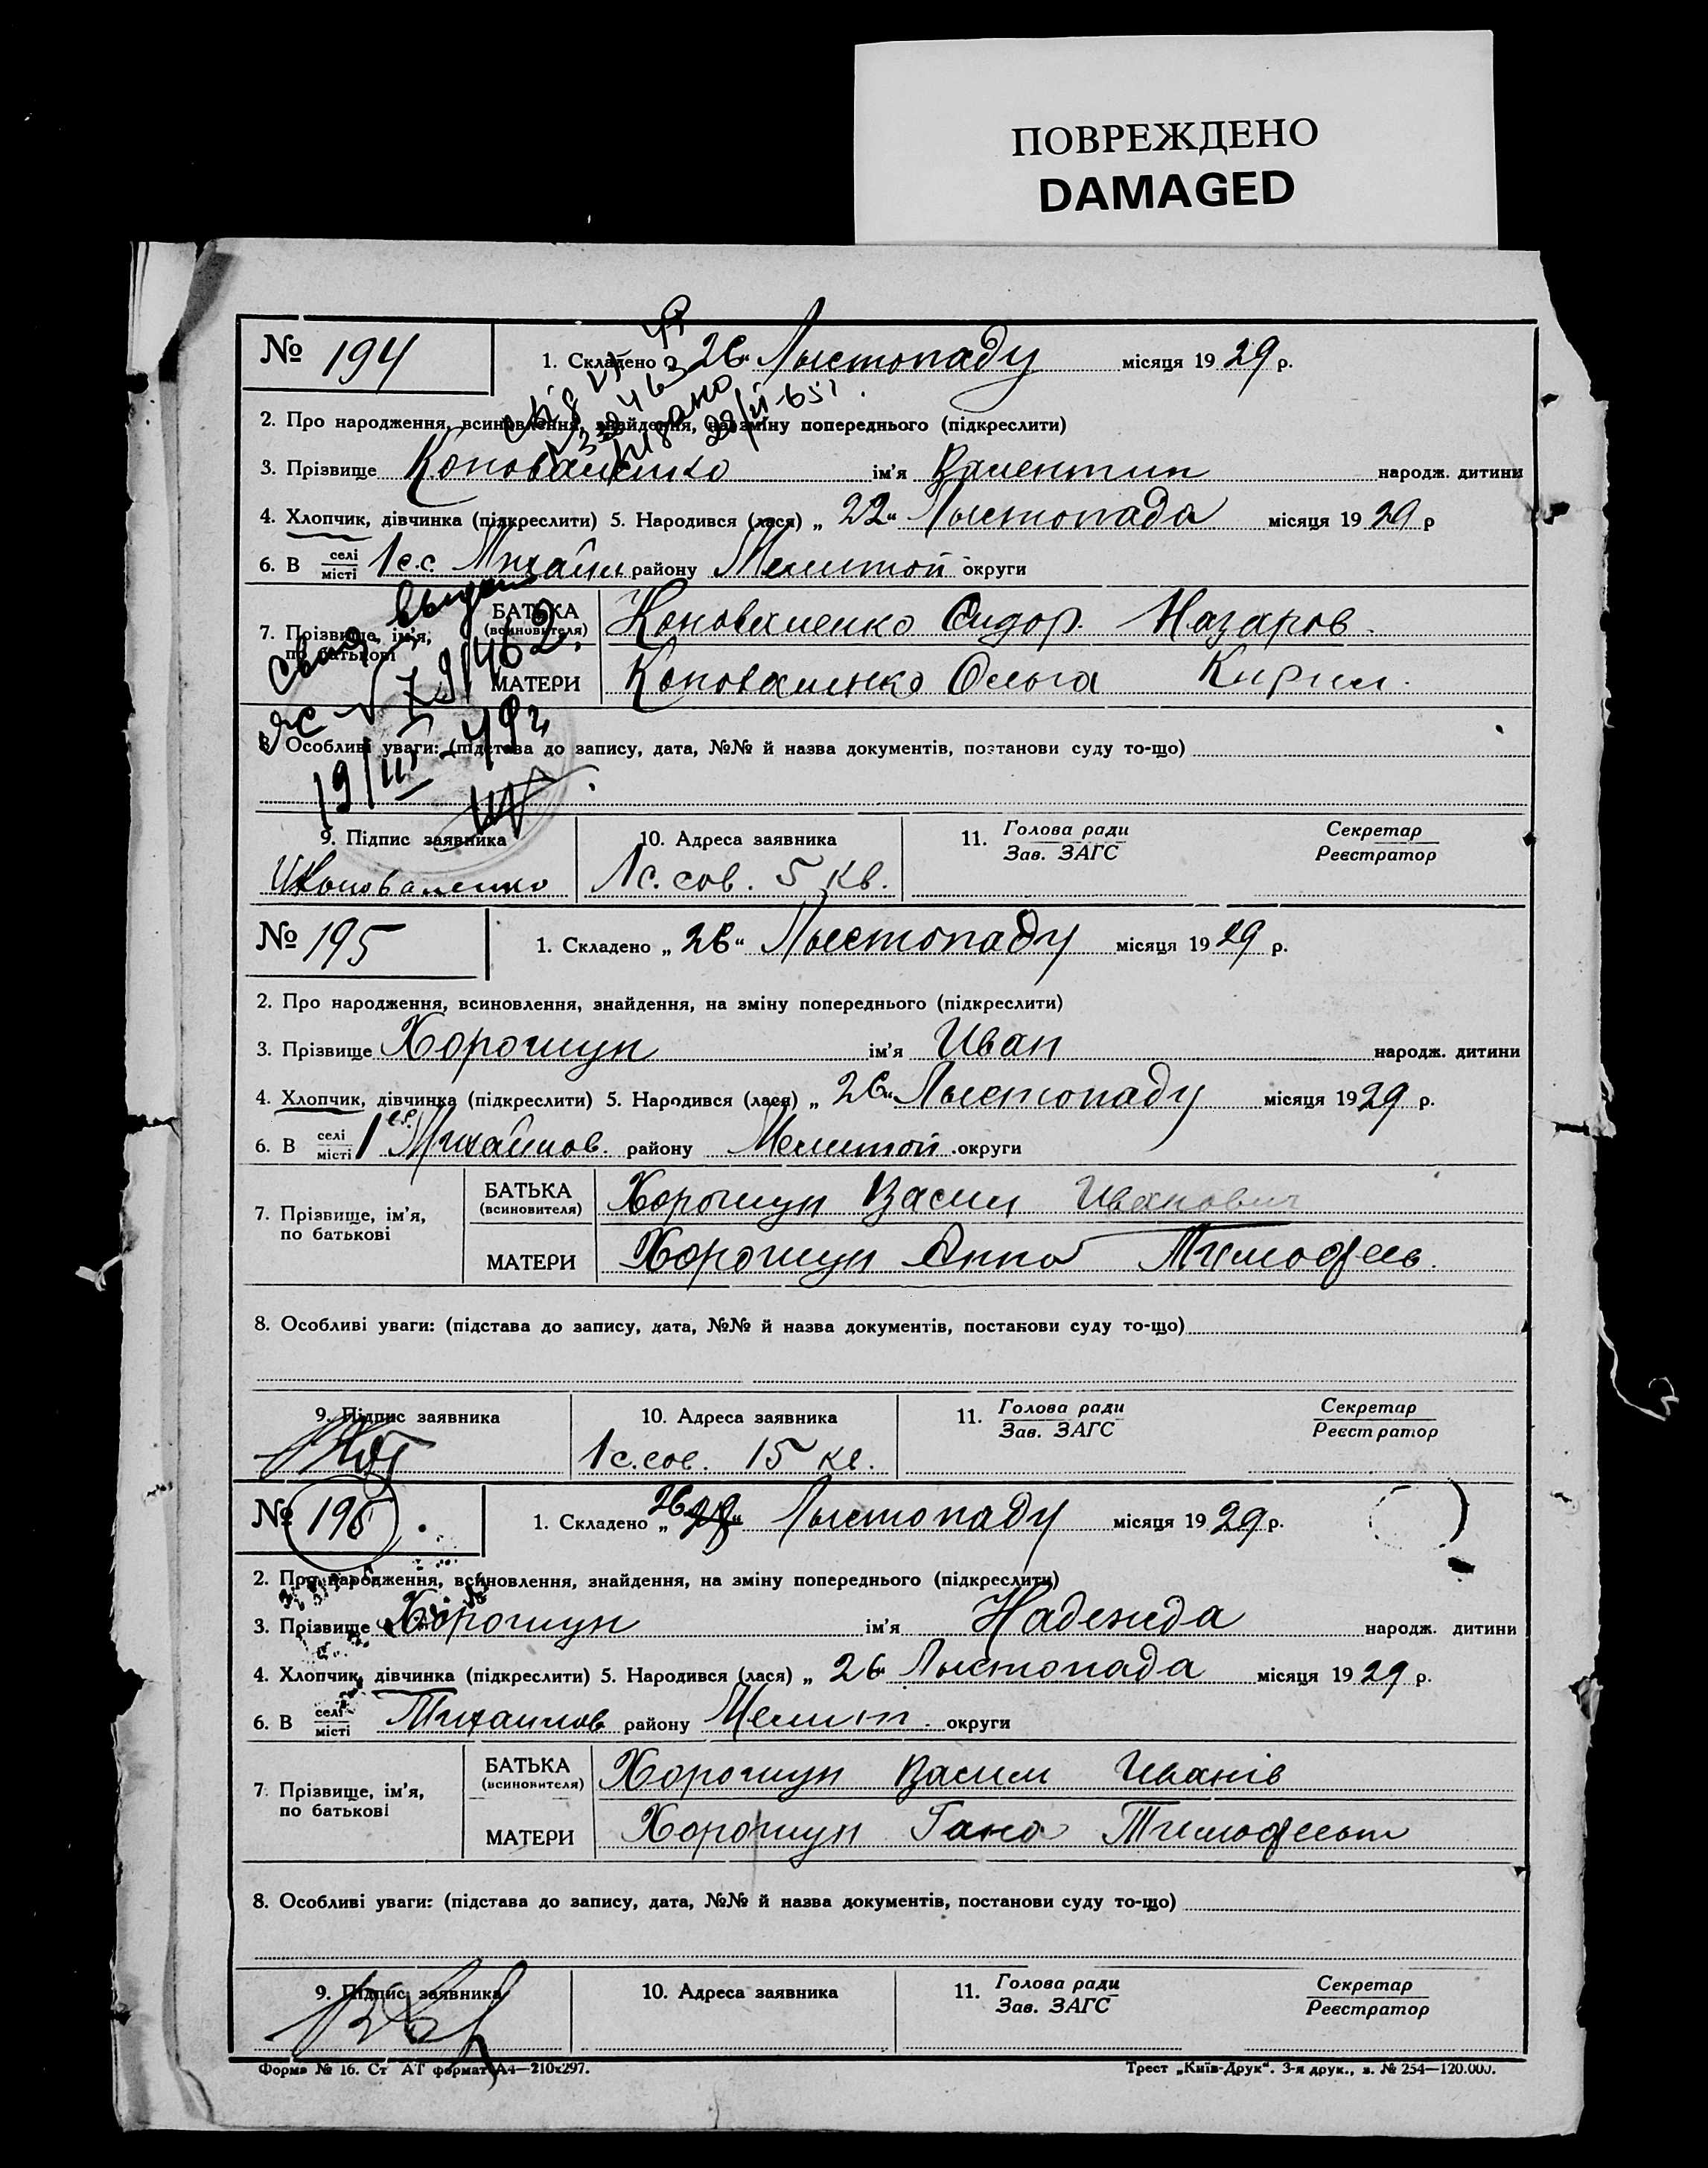 ПОВРЕЖДЕНО
DAMAGED
№ 194
1. Складено „26“ Лыстопаду місяця 1929 р.
2. Про народження, всиновлення, знайдення, на зміну попереднього (підкреслити)
3. Прізвище Коноваленко ім'я Валентин народж. дитини
4. Хлопчик, дівчинка (підкреслити) 5. Народився (лася) „22“ Лыстопада місяця 1929 р
6. В селі місті 1 с.с. Михайл району Мелитоп округи
7. Прізвище, ім'я, по батькові
БАТЬКА (всиновителя) Коноваленко Сидор. Назаров.
МАТЕРИ Коноваленко Ольга Кирил.
свид выдано
19/III
8. Особливі уваги: (підстава до запису, дата, №№ й назва документів, постанови суду то-що)
9. Підпис заявника
10. Адреса заявника
11. Голова ради Зав. ЗАГС
Секретар Реєстратор
Коноваленко 1с. сов. 5 кв.
№ 195
1. Складено „26“ Лыстопаду місяця 1929 р.
2. Про народження, всиновлення, знайдення, на зміну попереднього (підкреслити)
3. Прізвище Хорошун ім'я Иван народж. дитини
4. Хлопчик, дівчинка (підкреслити) 5. Народився (лася) „26“ Лыстопаду місяця 1929 р.
6. В селі місті 1 с.с. Михайлов. району Мелитоп. округи
7. Прізвище, ім'я, по батькові
БАТЬКА (всиновителя) Хорошун Васил Иванович
МАТЕРИ Хорошун Анна Тимофеев.
8. Особливі уваги: (підстава до запису, дата, №№ й назва документів, постанови суду то-що)
9. Підпис заявника
10. Адреса заявника
11. Голова ради Зав. ЗАГС
Секретар Реєстратор
1с. сов. 15 кв.
№ 196
1. Складено „26“ Лыстопаду місяця 1929 р.
2. Про народження, всиновлення, знайдення, на зміну попереднього (підкреслити)
3. Прізвище Хорошун ім'я Надежда народж. дитини
4. Хлопчик, дівчинка (підкреслити) 5. Народився (лася) „26“ Лыстопада місяця 1929 р.
6. В селі місті Михаилов району Мелит. округи
7. Прізвище, ім'я, по батькові
БАТЬКА (всиновителя) Хорошун Васил Иванів
МАТЕРИ Хорошун Гана Тимофеевн
8. Особливі уваги: (підстава до запису, дата, №№ й назва документів, постанови суду то-що)
9. Підпис заявника
10. Адреса заявника
11. Голова ради Зав. ЗАГС
Секретар Реєстратор
Форма № 16. Ст АТ формат А4—210x297.
Трест „Київ-Друк“. 3-я друк., з. № 254—120.000.